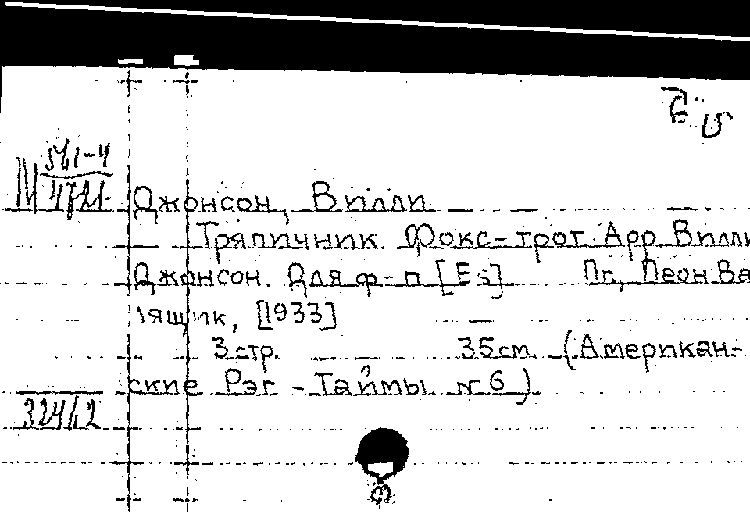 М 561-4
4721
Джонсон, Вилли
Тряпичник. Фокс-трот. Арр. Вилли
Джонсон. Для ф-п [Es] Пг, Леон Ва
лящик, [1933]
3 стр. 35 см (Американ-
ские Рэг-Таймы №6)
324/12